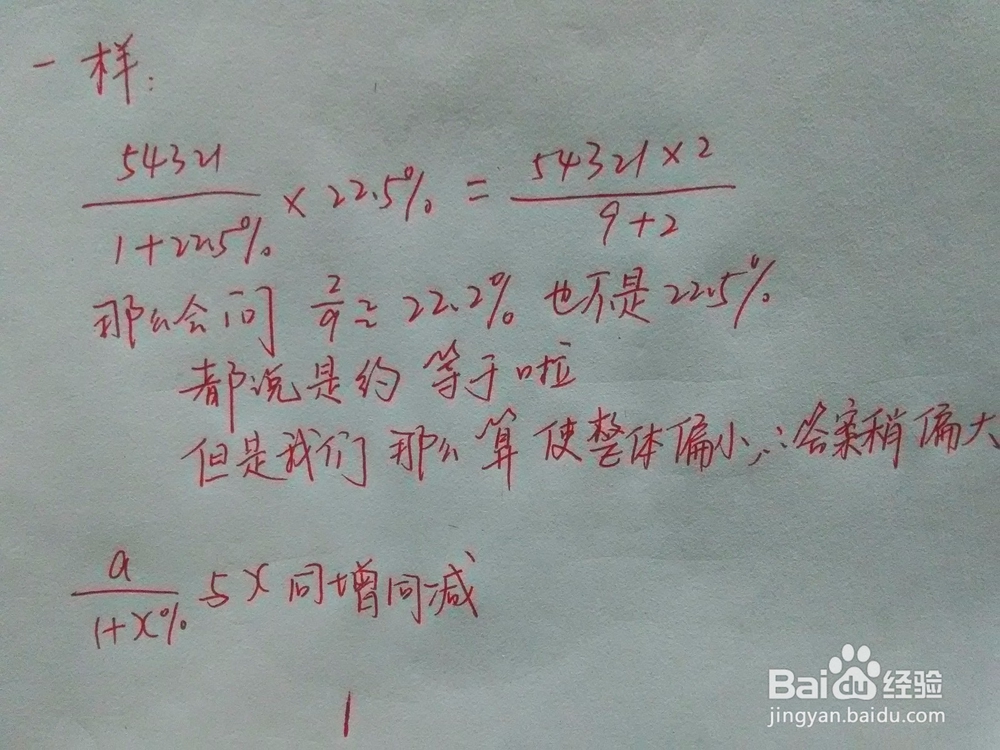 一样:
54321/(1+22.5%) × 22.5% = (54321×2)/(9+2)
那么会问 2/9≈22.2% 也不是22.5%
都说是约等于啦
但是我们那么算使整体偏小,∴答案稍偏大
a/(1+X%) 与X同增同减
1
Baidu经验
jingyan.baidu.com